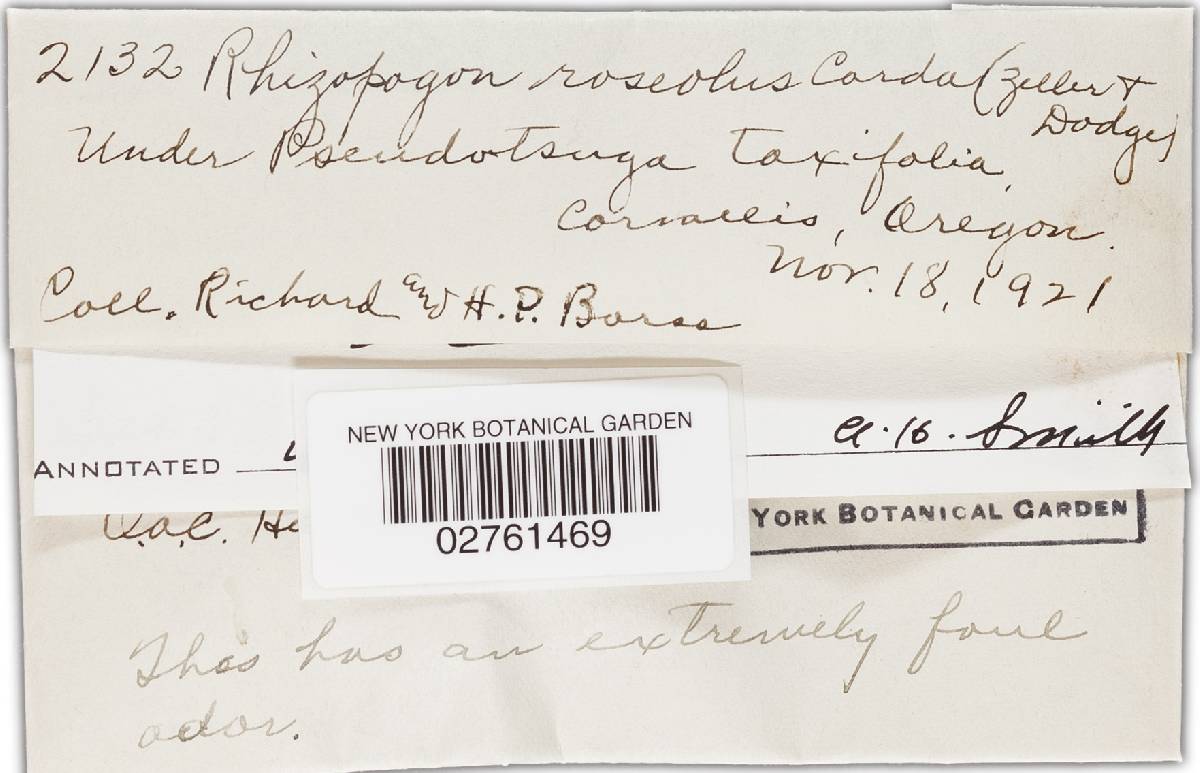 2132 Rhizopogon roseolus Corda (Zeller &
Dodge)
Under Pseudotsuga taxifolia,
Corvallis, Oregon.
Nov. 18, 1921
Coll. Richard and H.P. Barss
NEW YORK BOTANICAL GARDEN
ANNOTATED A. H. Smith
02761469
YORK BOTANICAL GARDEN
This has an extremely foul
odor.